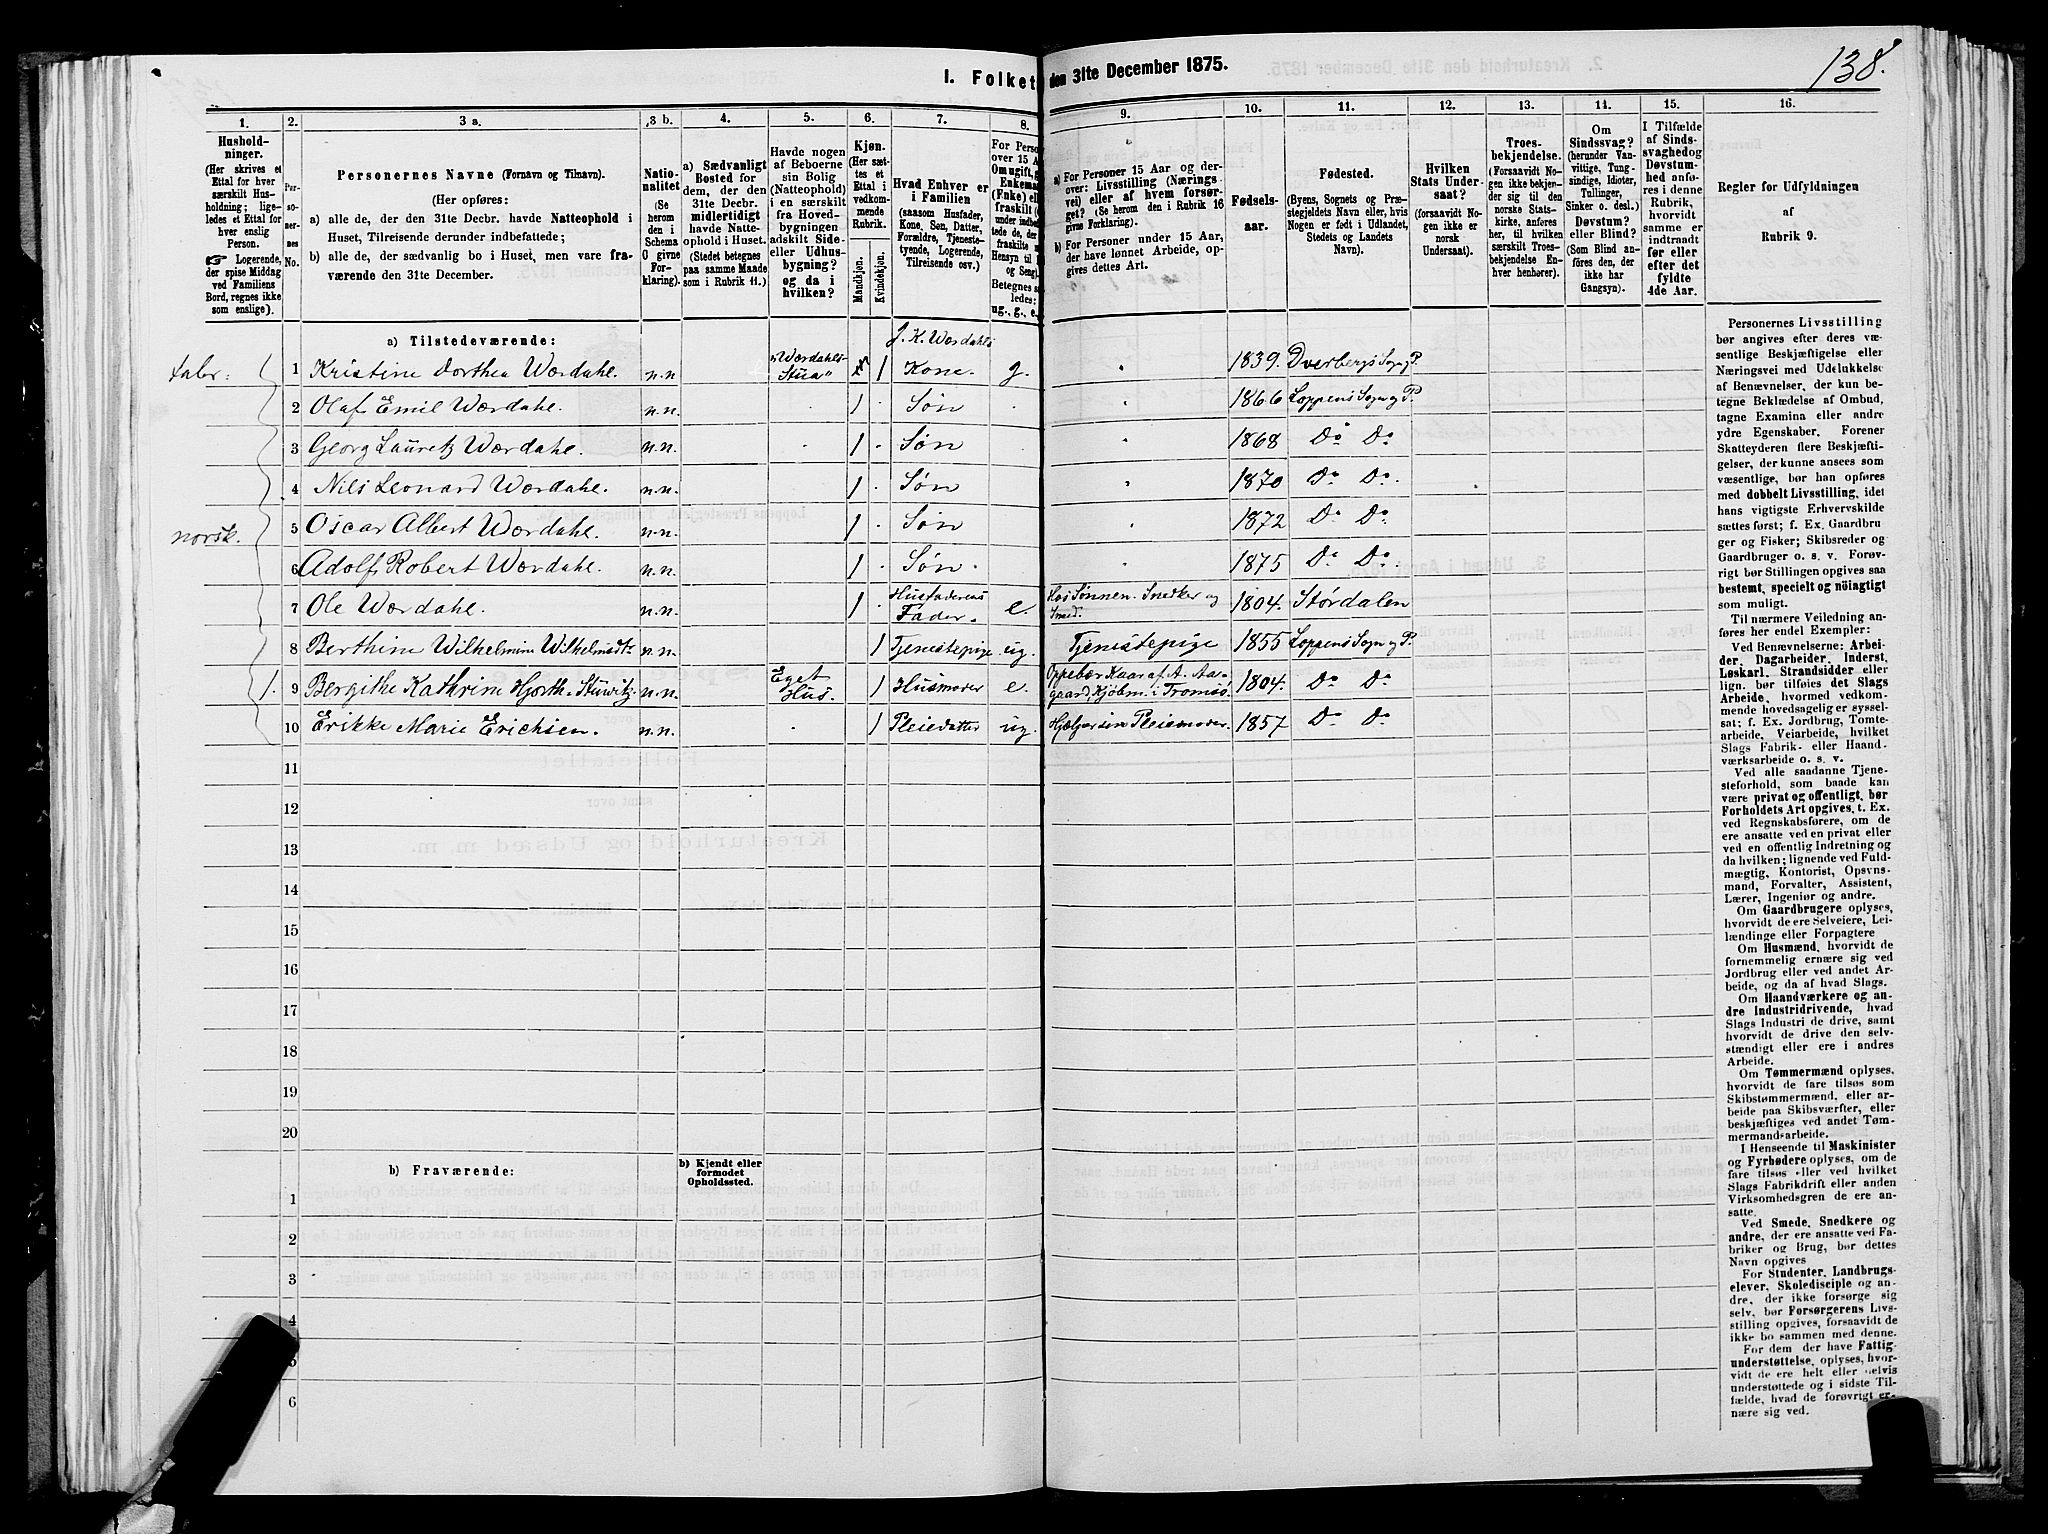 138.
I. Folket
den 31te December 1875.
1.
Hushold-
ninger.
(Her skrives et
Ettal for hver
særskilt Hus-
holdning; lige-
ledes et Ettal for
hver enslig
Person.
☞ Logerende,
der spise Middag
ved Familiens
Bord, regnes ikke
som enslige).
2.
Per-
so-
ner-
nes
No.
3 a.
Personernes Navne (Fornavn og Tilnavn).
(Her opføres:
a) alle de, der den 31te Decbr. havde Natteophold i
Huset, Tilreisende derunder indbefattede;
b) alle de, der sædvanlig bo i Huset, men vare fra-
værende den 31te December.
3 b.
Natio-
nalitet
(Se
herom
den i
Schema
O givne
For-
klaring).
4.
a) Sædvanligt
Bosted for
dem, der den
31te Decbr.
midlertidigt
havde Natte-
ophold i Huset.
(Stedet betegnes
paa samme Maade
som i Rubrik 11.)
5.
Havde nogen
af Beboerne
sin Bolig
(Natteophold)
i en særskilt
fra Hoved-
bygningen
adskilt Side-
eller Udhus-
bygning?
og da i
hvilken?
6.
Kjøn.
(Her sæt-
tes et
Ettal i
vedkom-
mende
Rubrik.
Mandkjøn.
Kvindekjøn.
7.
Hvad Enhver er
i Familien
(saasom Husfader,
Kone, Søn, Datter,
Forældre, Tjeneste-
tyende, Logerende,
Tilreisende osv.)
8.
For Person
over 15 A
Om ugift, g
Enkema
(Enke) el
fraskilt (
under indb
tede de, d
fraskilte
Hensyn t
og Seng)
Betegnes s
ledes:
ug., g., e.
9.
a) For Personer 15 Aar og der-
over: Livsstilling (Nærings-
vei) eller af hvem forsør-
get? (Se herom den i Rubrik 16
givne Forklaring).
b) For Personer under 15 Aar,
der have lønnet Arbeide, op-
gives dettes Art.
10.
Fødsels-
aar.
11.
Fødested.
(Byens, Sognets og Præ-
stegjeldets Navn eller, hvis
Nogen er født i Udlandet,
Stedets og Landets
Navn).
12.
Hvilken
Stats Under-
saat?
(forsaavidt No-
gen ikke er
norsk
Undersaat).
13.
Troes-
bekjendelse.
(Forsaavidt No-
gen ikke bekjen-
der sig til den
norske Stats-
kirke, anføres
her, til hvilken
særskilt Troes-
bekjendelse En-
hver henhører).
14.
Om
Sindssvag?
(herunder Van-
vittige, Tung-
sindige, Idioter,
Tullinger,
Sinker o. desl.)
Døvstum?
eller Blind?
(Som Blind an-
føres den, der
ikke har
Gangsyn).
15.
I Tilfælde
af Sinds-
svaghed og
Døvstum-
hed anfø-
res i denne
Rubrik,
hvorvidt
samme er
indtraadt
før eller
efter det
fyldte
4de Aar.
16.
Regler for Udfyldningen
af
Rubrik 9.
a) Tilstedeværende:
J. K. Wærdahls
taler:
1 Kristine Dorthea Wærdahl. n.n "Wærdahls-Stua" 1 Kone. g. " 1839. Dverbergs Sogn og P.
2 Olaf Emil Wærdahl. n.n. 1 Søn " 1866 Loppens Sogn og P.
3 Georg Lauretz Wærdahl. n.n. 1 Søn " 1868 Do Do
4 Nils Leonard Wærdahl. n.n. 1 Søn " 1870 Do Do.
norsk.
5 Oscar Albert Wærdahl. n.n. 1 Søn " 1872 Do Do.
6 Adolf Robert Wærdahl. n.n. 1 Søn. " 1875 Do Do
7 Ole Wærdahl. n.n. 1 Husfaderens Fader. e. Hos Sønnen. Snedker og Smed. 1804. Størdalen
8 Berthine Wilhelmine Wilhelmsdtr n.n. 1 Tjenestepige ug. Tjenestepige 1855 Loppens Sogn og P.
1. 9 Bergithe Kathrine Hjorth Stuwitz n.n. Eget Hus. 1 Husmoder e. Oppebær Kaar af A. Aagaard, Kjøbm. i Tromsø. 1804. Do Do
10 Erikke Marie Erichsen. n.n. 1 Pleiedatter ug. Hjælper sin Pleiemoder. 1857 Do Do
11
12
13
14
15
16
17
18
19
20
b) Fraværende:
b) Kjendt eller
formodet
Opholdssted.
1
2
3
4
5
6
Personernes Livsstilling
bør angives efter deres væ-
sentlige Beskjæftigelse eller
Næringsvei med Udelukkelse
af Benævnelser, der kun be-
tegne Beklædelse af Ombud,
tagne Examina eller andre
ydre Egenskaber. Forener
Skatteyderen flere Beskjæfti-
gelser, der kunne ansees som
væsentlige, bør han opføres
med dobbelt Livsstilling, idet
hans vigtigste Erhvervskilde
sættes først; f. Ex. Gaardbru-
ger og Fisker; Skibsreder og
Gaardbruger o. s. v. Forøv-
rigt bør Stillingen opgives saa
bestemt, specielt og nöiagtigt
som muligt.
Til nærmere Veiledning an-
føres her endel Exempler:
Ved Benævnelserne: Arbei-
der, Dagarbeider, Inderst,
Løskarl, Strandsidder eller
lign. bør tilføies det Slags
Arbeide, hvormed vedkom-
mende hovedsagelig er syssel-
sat; f. Ex. Jordbrug, Tomte-
arbeide, Veiarbeide, hvilket
Slags Fabrik- eller Haand-
værksarbeide o. s. v.
Ved alle saadanne Tjene-
steforhold, som baade kan
være privat og offentligt, bør
Forholdets Art opgives, t. Ex.
ved Regnskabsførere, om de
ere ansatte ved en privat eller
ved en offentlig Indretning og
da hvilken; lignende ved Fuld-
mægtig, Kontorist, Opsyns-
mand, Forvalter, Assistent,
Lærer, Ingeniør og andre.
Om Gaardbrugere oplyses,
hvorvidt de ere Selveiere, Lei-
lændinge eller Forpagtere
Om Husmænd, hvorvidt de
fornemmelig ernære sig ved
Jordbrug eller ved andet Ar-
beide, og da af hvad Slags.
Om Haandværkere og an-
dre Industridrivende, hvad
Slags Industri de drive, samt
hvorvidt de drive den selv-
stændigt eller ere i andres
Arbeide.
Om Tømmermænd oplyses,
hvorvidt de fare tilsøs som
Skibstømmermænd, eller ar-
beide paa Skibsværfter, eller
beskjæftiges ved andet Tøm-
mermandsarbeide.
I Henseende til Maskinister
og Fyrbødere oplyses, om de
fare tilsøs eller ved hvilket
Slags Fabrikdrift eller anden
Virksomhedsgren de ere an-
satte.
Ved Smede, Snedkere og
andre, der ere ansatte ved Fa-
briker og Brug, bør dettes
Navn opgives
For Studenter, Landbrugs-
elever, Skoledisciple og an-
dre, der ikke forsørge sig
selv, bør Forsørgerens Livs-
stilling opgives, forsaavidt de
ikke bo sammen med denne.
For dem der have Fattig-
understøttelse, oplyses, hvor-
vidt de ere helt eller delvis
understøttede og i sidste Til-
fælde, hvad de forøvrigt er-
nære sig ved.